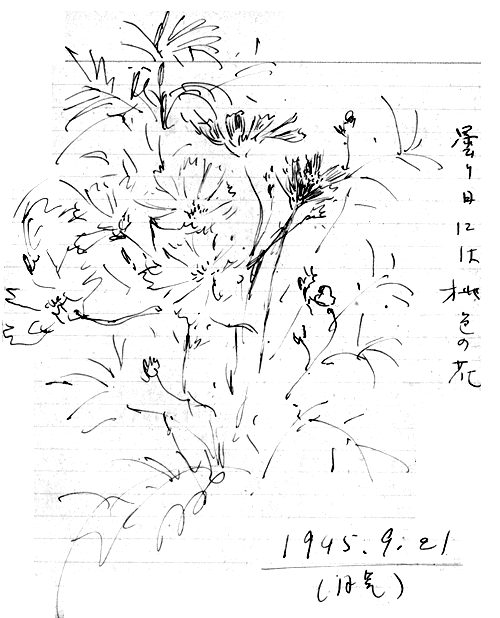 曇り日には桃色の花
1945.9.21
(日氣)